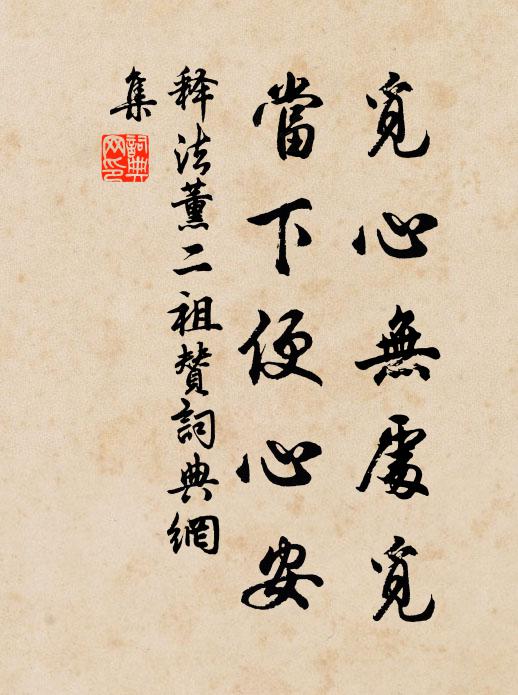 覓心無處覓
當下便心安
释法薰二祖贊詞典網
集
詞典
网印